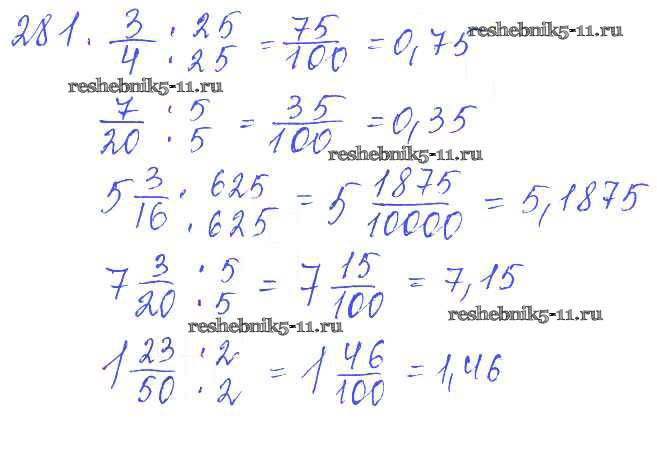 281. 3/4 · 25/25 = 75/100 = 0,75 reshebnik5-11.ru
reshebnik5-11.ru
7/20 · 5/5 = 35/100 = 0,35
reshebnik5-11.ru
5 3/16 · 625/625 = 5 1875/10000 = 5,1875
7 3/20 · 5/5 = 7 15/100 = 7,15
reshebnik5-11.ru reshebnik5-11.ru
1 23/50 · 2/2 = 1 46/100 = 1,46